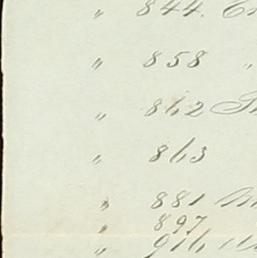 " 844.
" 858 "
" 862
" 863
" 881
" 897
" 916